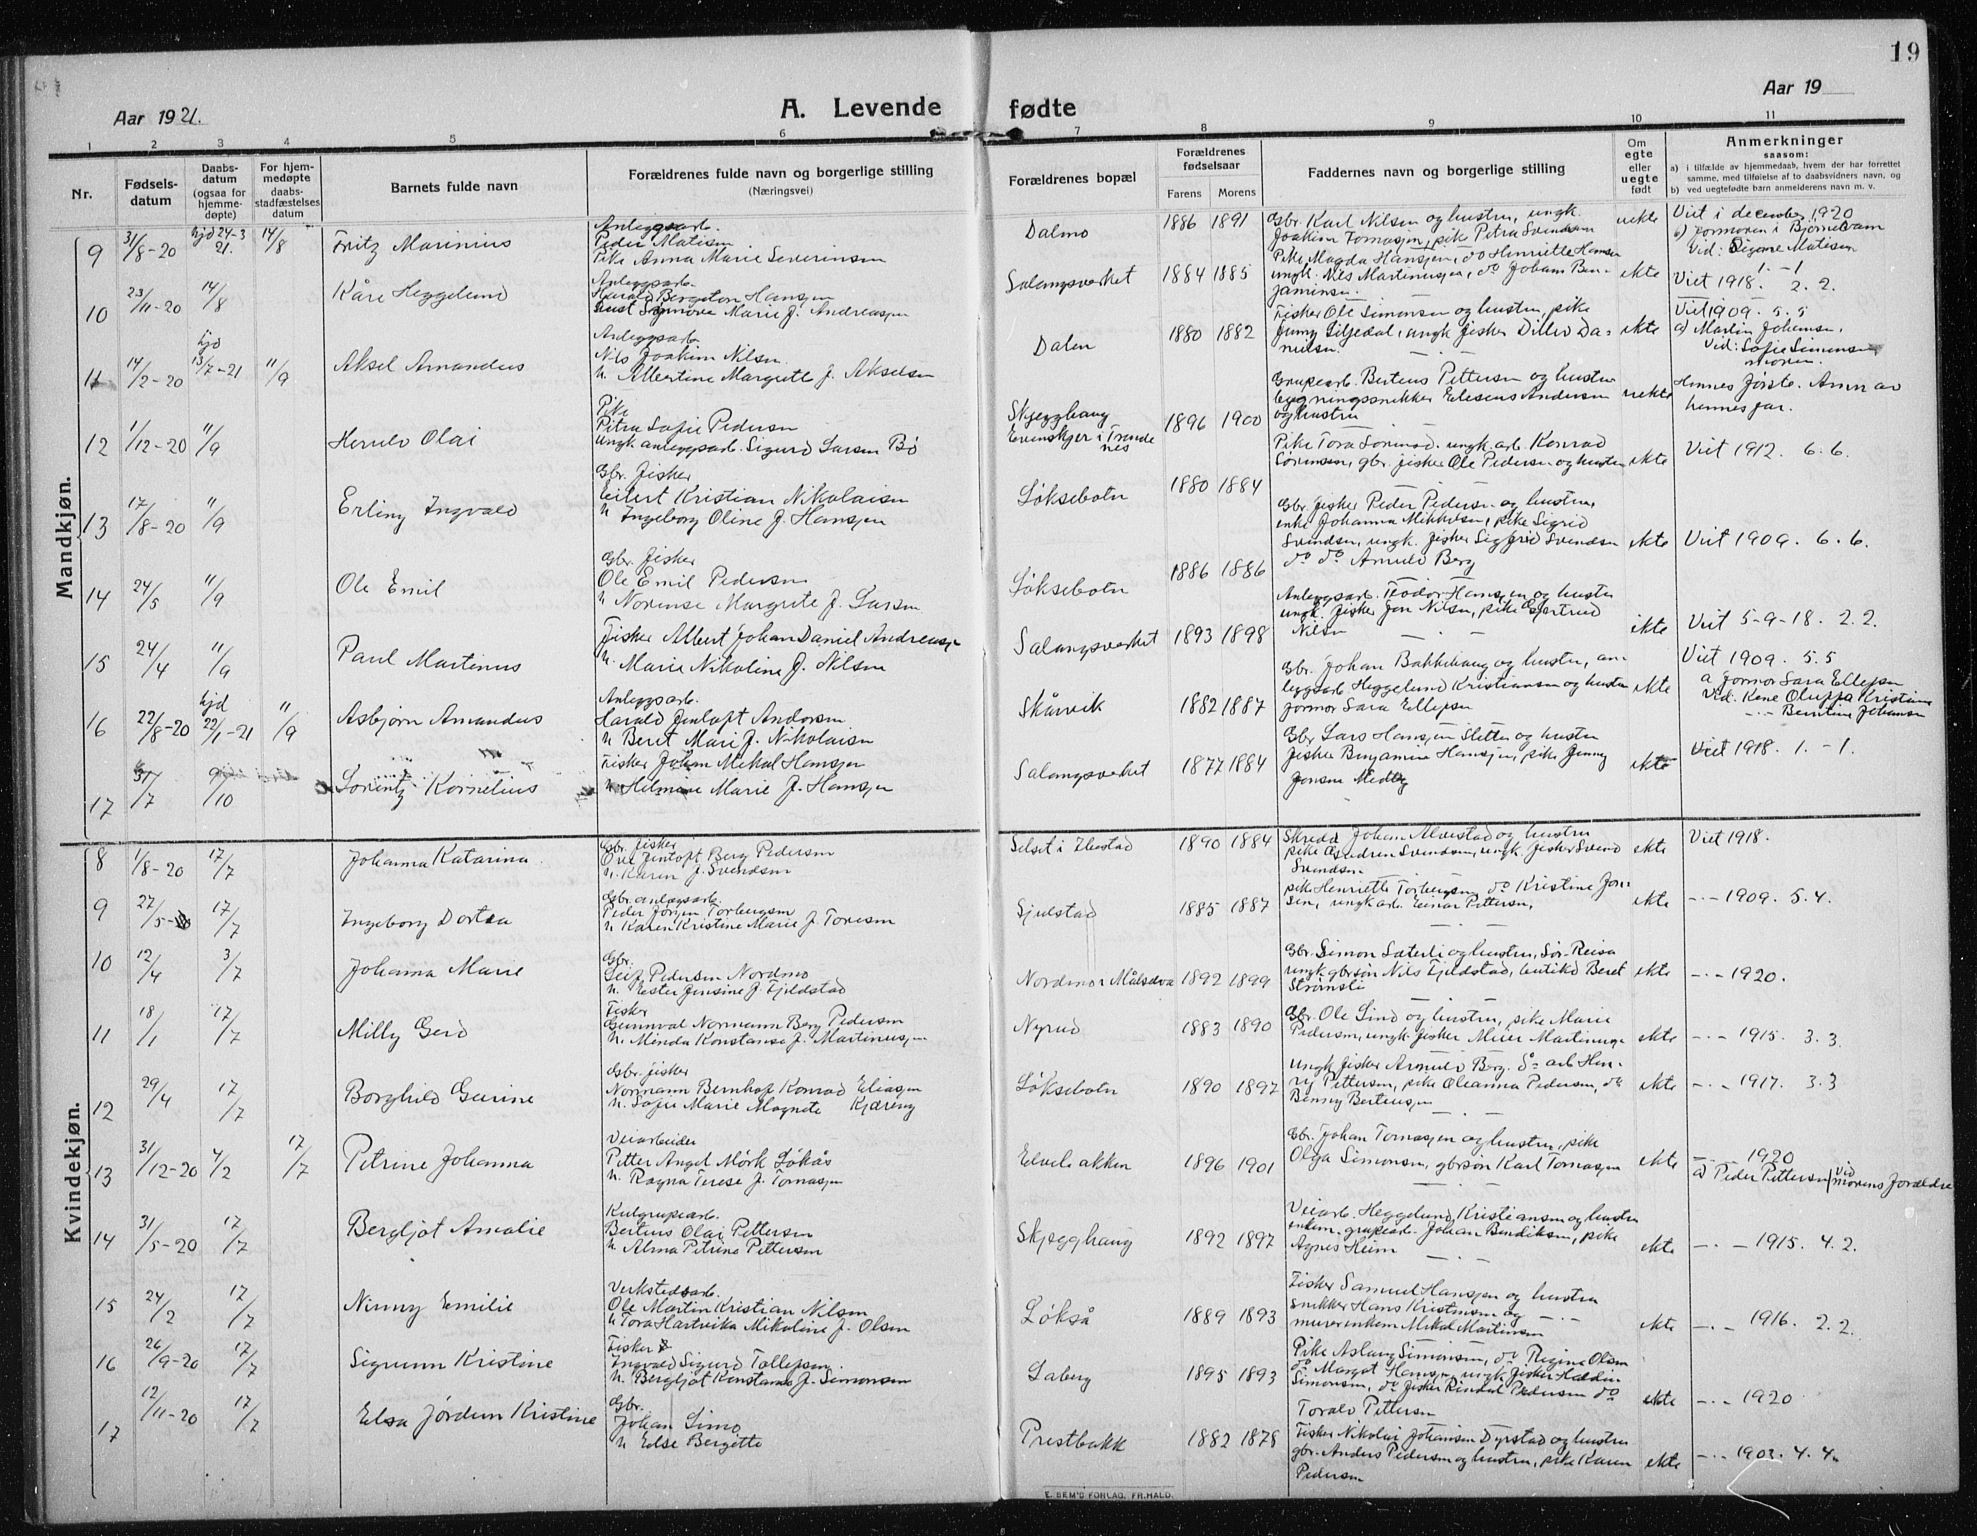 19
Aar 1921.
A. Levende fødte
Aar 19
1 2 3 4 5 6 7 8 9 10 11
Nr.
Fødsels-
datum
Daabs-
datum
(ogsaa for
hjemme-
døpte)
For hjem-
medøpte
daabs-
stadfæstelses
datum
Barnets fulde navn
Forældrenes fulde navn og borgerlige stilling
(Næringsvei)
Forældrenes bopæl
Forældrenes
fødselsaar
Farens Morens
Faddernes navn og borgerlige stilling
Om
egte
eller
uegte
født
Anmerkninger
saasom:
a) i tilfælde av hjemmedaab, hvem der har forrettet
samme, med tilføielse af to daabsvidners navn, og
b) ved uegtefødt barn anmelderens navn m. v.
Mandkjøn.
9 31/8-20 hjd 24-3 21. 14/8 Fritz Marinius
Anleggsarb.
Peder Matisen
Pike Anna Marie Severinsen
Dalmo 1886 1891
Gbr. Karl Nilsen og hustru, ungk.
Joakim Tomasjen, pike Petra Svendsen
uekte
Viet i december 1920
b) formoren i Bjørnebvam
Vid: Signe Matisen
10 23/11-20 14/8 Kåre Heggelund
Anleggsarb.
Harald Bergiton Hansjen
Hust Signove Marie f. Andreasjen
Salangsverket 1884 1885
Pike Magda Hansjen, do Henriette Hansen
ungk. Nils Martinusjen, do Johan Ben-
jaminsen.
ekte
1. - 1
Viet 1918. 2. 2.
11 14/2-20 hjd 13/7-21 11/9 Aksel Amandus
Anleggsarb.
Nils Joakim Nilsen.
h. Albertine Margrete f. Akselsen
Dalen 1880 1882
Fisker Ole Simonsen og hustru, pike
Jenny Liljedal, ungk fisker Ditlev Da-
nielsen.
ekte
Viet 1909. 5. 5
a) Martin Johansen,
Vid: Sofie Simonsen
moren
12 1/12-20 11/9 Herulv Olai
Pike
Petra Sofie Pedersen
Ungk. anleggsarb. Sigurd Larsen Bø
Skjegghaug
Evenskjer i Trondenes
1896 1900
Grupearb. Bertens Pettersen og hustru
bygningssnikker Elesens Andersen
og hustru
uekte
Hennes første. Anm av
hennes far.
13 17/8-20 11/9 Erling Ingvald
Gbr. fisker
Eilert Kristian Nikolaisen
h Ingeborg Oline f. Hansjen
Løksebotn 1880 1884
Pike Tora Sørensd. ungk. arb. Konrad
Sørensen, gbr. fisker Ole Pedersen og hustru
ekte
Viet 1912. 6. 6.
14 24/5 11/9 Ole Emil
Gbr. fisker
Ole Emil Pedersen
h Norense Margrete f. Larsen
Løksebotn 1886 1886
Gbr. fisker Peder Pedersen og hustru,
enke Johanna Mikkelsen, pike Sigrid
Svendsen, ungk. fisker Sigfrid Svendsen
do do Arnulv Berg
ekte
Viet 1909. 6. 6.
15 24/4 11/9 Paul Martinus
Fisker Albert Johan Daniel Andreasjen
h. Marie Nikoline f. Nilsen
Salangsverket 1893 1898
Anleggsarb. Teodor Hansjen og hustru
ungk. fisker Jon Nilsen, pike Gjertrud
Nilsen
ekte
Viet 5-9-18. 2. 2.
16 22/8-20 hjd 22/1-21 11/9 Asbjørn Amandus
Anleggsarb.
Harald Jentoft Andersen
h Beret Mari f. Nikolaisen
Skårvik 1882 1887
Gbr. Johan Bakkehaug og hustru, an-
leggsarb Heggelund Kristiansen og hustru
formor Sara Ellefsen
ekte
Viet 1909. 5. 5
a formor Sara Ellefsen
Vid. Kone Oluffa Kristians
-.- Berntine Johansen
17 31/7 9/10 Lorentz Kornelius
Fisker Johan Mekal Hansjen
h. Helmine Marie f. Hansjen
Salangsverket 1877 1884
Gbr Lars Hansjen Sletten og hustru
fisker Benjamin Hansjen, pike Jenny
Jonsen Medby
ekte
Viet 1918. 1. - 1.
Kvindekjøn.
8 1/8-20 17/7 Johanna Katarina.
Gbr. fisker
Ove Jentoft Berg Pedersen
h. Karen f. Svendsen
Selset i Ibestad 1890 1884
Skredd. Johan Alvestad og hustru
pike Gudrun Svendsen, ungk. fisker Svend
Svendsen
ekte
Viet 1918.
9 27/5- 17/7 Ingeborg Dortea
Gbr. anlegsarb.
Peder Jørgen Torbergsen
h Karen Kristine Marie f. Toresen
Sjelstad 1885 1887
pike Henriette Torbergsen, do Kristine Jon-
sen, ungk arb. Einar Pettersen,
ekte
-.- 1909. 5. 4.
10 12/4 3/7 Johanna Marie
Gbr.
Leif Pedersen Nordmo
h. Ester Jensine f. Fjeldstad
Nordmo i Målselv 1892 1899
Gbr. Simon Sæterli og hustru, Sør-Reisa
ungk gbrsøn Nils Fjeldstad, butikd Beret
Strømsli
ekte
-.- 1920.
11 18/1 17/7 Milly Gerd
Fisker
Gunnval Normann Berg Pedersen
h. Minda Konstanse f. Martinusjen
Nyrud 1883 1890
Gbr. Ole Lind og hustru, pike Marie
Pedersen, ungk. fisker Meier Martinusje
ekte
-.- 1915. 3. 3.
12 29/4 17/7 Borghild Gurine
Gbr. fisker
Normann Bernhof Konrad Eliasjen
h. Sofie Marie Magnete Kjæreng
Løksebotn 1890 1897
Ungk fisker Arnulv Berg. do arb Hen-
ry Pettersen, pike Oleanna Pedersen, do
Benny Bertensjen
ekte
-.- 1917. 3. 3
13 31/12-20 4/2 17/7 Petrine Johanna
Veiarbeider
Petter Angel Mørk Løkås
h. Ragna Terese f. Tomasjen
Elvebakken 1896 1901
Gbr. Johan Tomasjen og hustru, pike
Olga Simonsen, gbrsøn Karl Tomasjen
ekte
-.- 1920
a) Peder Pettersen, vid morens forældre
14 31/5-20 17/7 Bergljot Amalie
Kulgrupearb.
Bertens Olai Pettersen
h. Alma Petrine Pettersen
Skjegghaug 1892 1897
Veiarb. Heggelund Kristiansen og hustru
enkem. grupearb. Johan Bendiksen, pike
Agnes Heim
ekte
-.- 1915. 4. 2.
15 24/2 17/7 Ninny Emilie
Verkstedsarb.
Ole Martin Kristian Nilsen
h Tora Hartvika Mikoline f. Olsen
Løkså 1889 1893
Fisker Samuel Hansjen og hustru
snikker Hans Kristensen og -.-
murer enkem. Mekal Martinsen
ekte
-.- 1916. 2. 2.
16 26/9-20 17/7 Sigrunn Kristine
Fisker
Ingvald Sigurd Tollefsen.
h. Bergljot Konstanse f. Simonsen
Laberg 1895 1893
Pike Aslaug Simonsen, do Regine Olsen
do Margot Hansen, ungk fisker Haldin
Simonsen, do fisker Rindal Pedersen do
Toralv Pettersen
ekte
-.- 1920
17 12/11-20 17/7 Elsa Jordun Kristine
Gbr.
Johan Simo
h Else Bergitte
Prestbakk 1882 1878
Fisker Nikolai Johansen Dyrstad og hustru
gbr. Anders Pedersen og hustru, pike Karen
Pedersen
ekte
-.- 1903. 4. 4.
E. SEM'S FORLAG, FR.HALD.